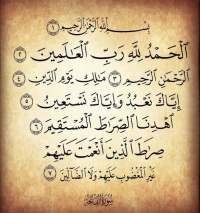 بِسْمِ اللَّهِ الرَّحْمَٰنِ الرَّحِيمِ ١
الْحَمْدُ لِلَّهِ رَبِّ الْعَالَمِينَ ٢
الرَّحْمَٰنِ الرَّحِيمِ ٣ مَالِكِ يَوْمِ الدِّينِ ٤
إِيَّاكَ نَعْبُدُ وَإِيَّاكَ نَسْتَعِينُ ٥
اهْدِنَا الصِّرَاطَ الْمُسْتَقِيمَ ٦
صِرَاطَ الَّذِينَ أَنْعَمْتَ عَلَيْهِمْ
غَيْرِ الْمَغْضُوبِ عَلَيْهِمْ وَلَا الضَّالِّينَ ٧
سُورَةُ الْفَاتِحَةِ